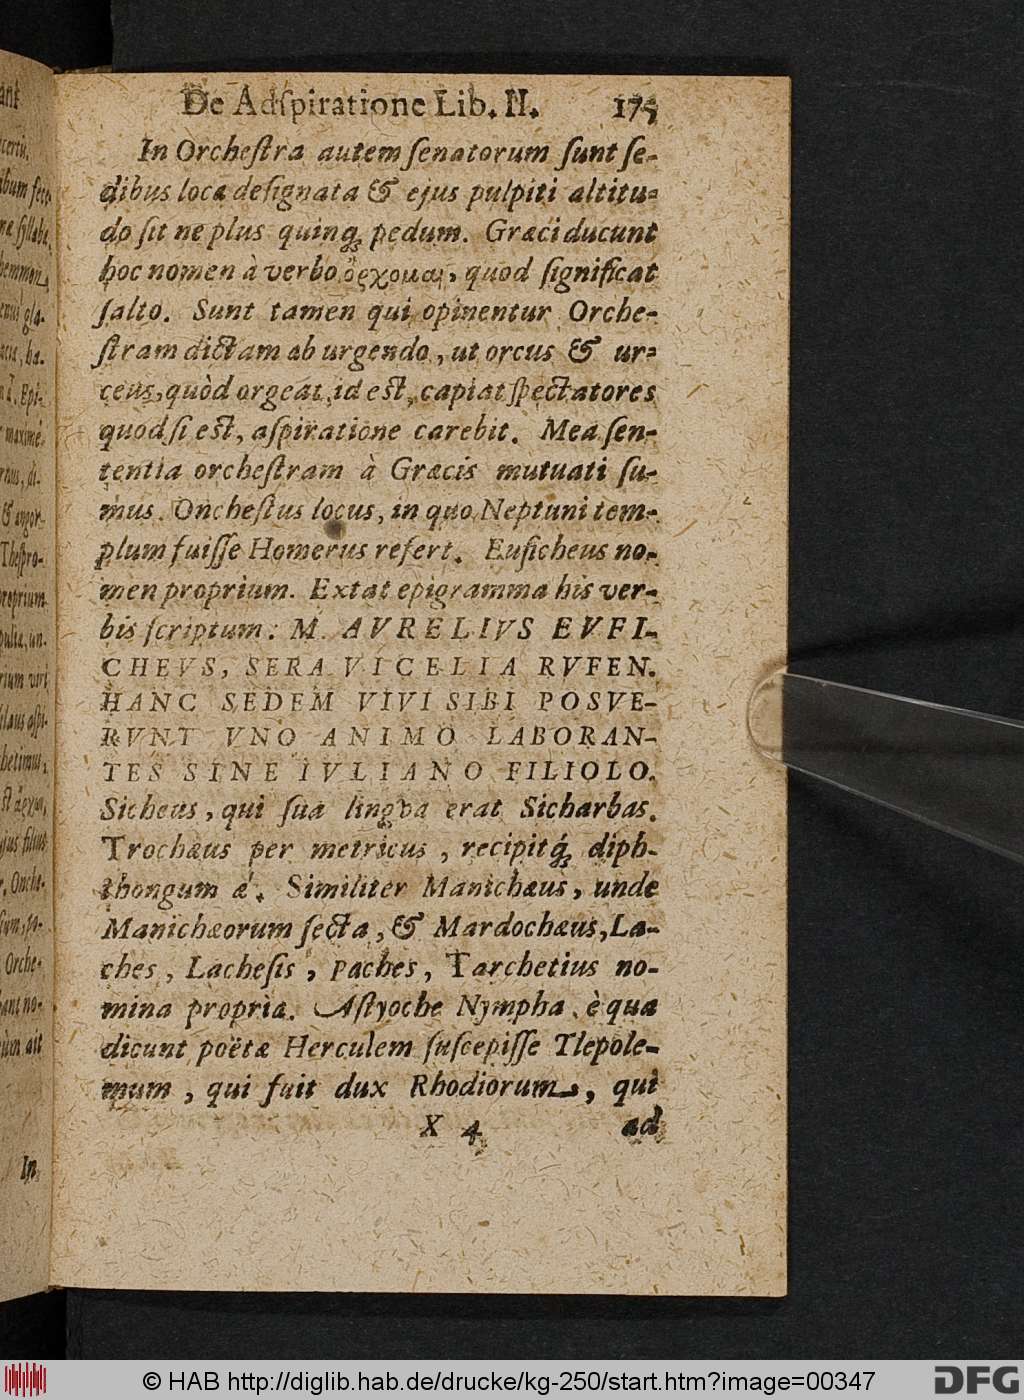 De Adſpiratione Lib. II. 175
In Orcheſtra autem ſenatorum ſunt ſe-
dibus loca deſignata & ejus pulpiti altitu-
do ſit ne plus quinq; pedum. Græci ducunt
hoc nomen à verbo ὄρχομαι, quod ſignificat
ſalto. Sunt tamen qui opinentur Orche-
ſtram dictam ab urgendo, ut orcus & ur-
ceus, quòd orgeat, id eſt, capiat ſpectatores
quod ſi eſt, aſpiratione carebit. Mea ſen-
tentia orcheſtram à Græcis mutuati ſu-
mus. Oncheſtus locus, in quo Neptuni tem-
plum fuiſſe Homerus refert. Euſicheus no-
men proprium. Extat epigramma his ver-
bis ſcriptum: M. AVRELIVS EVFI-
CHEVS, SERA VICELIA RVFEN.
HANC SEDEM VIVI SIBI POSVE-
RVNT VNO ANIMO LABORAN-
TES SINE IVLIANO FILIOLO.
Sicheus, qui ſua lingva erat Sicharbas.
Trochæus per metricus, recipitq́; diph-
thongum æ. Similiter Manichæus, unde
Manichæorum ſecta, & Mardochæus, La-
ches, Lacheſis, Paches, Tarchetius no-
mina propria. Aſtyoche Nympha, è qua
dicunt poëtæ Herculem ſuſcepiſſe Tlepole-
mum, qui fuit dux Rhodiorum, qui
X 4 ad
In
© HAB http://diglib.hab.de/drucke/kg-250/start.htm?image=00347
DFG